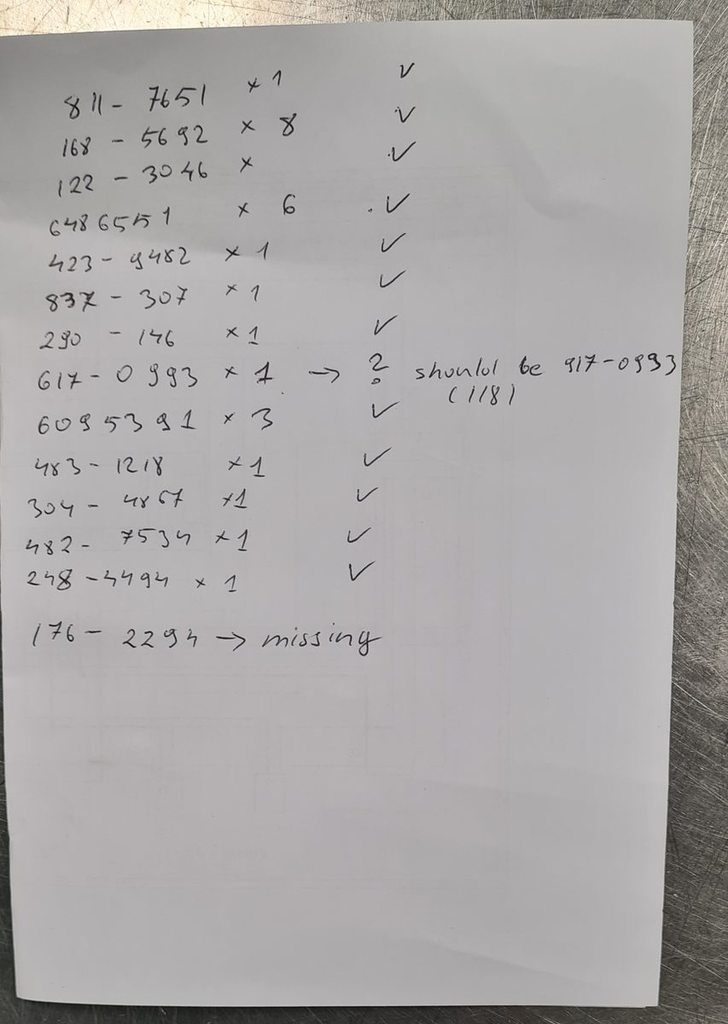 811 - 7651 × 1 ✓
168 - 5692 × 8 ✓
122 - 3046 × ✓
6486551 × 6 ✓
423 - 9482 × 1 ✓
837 - 307 × 1 ✓
290 - 146 × 1 ✓
617 - 0993 × 1 → ? should be 917-0993
(118)
6095391 × 3 ✓
483 - 1218 × 1 ✓
304 - 4867 × 1 ✓
482 - 7534 × 1 ✓
248 - 4494 × 1 ✓
176 - 2294 → missing